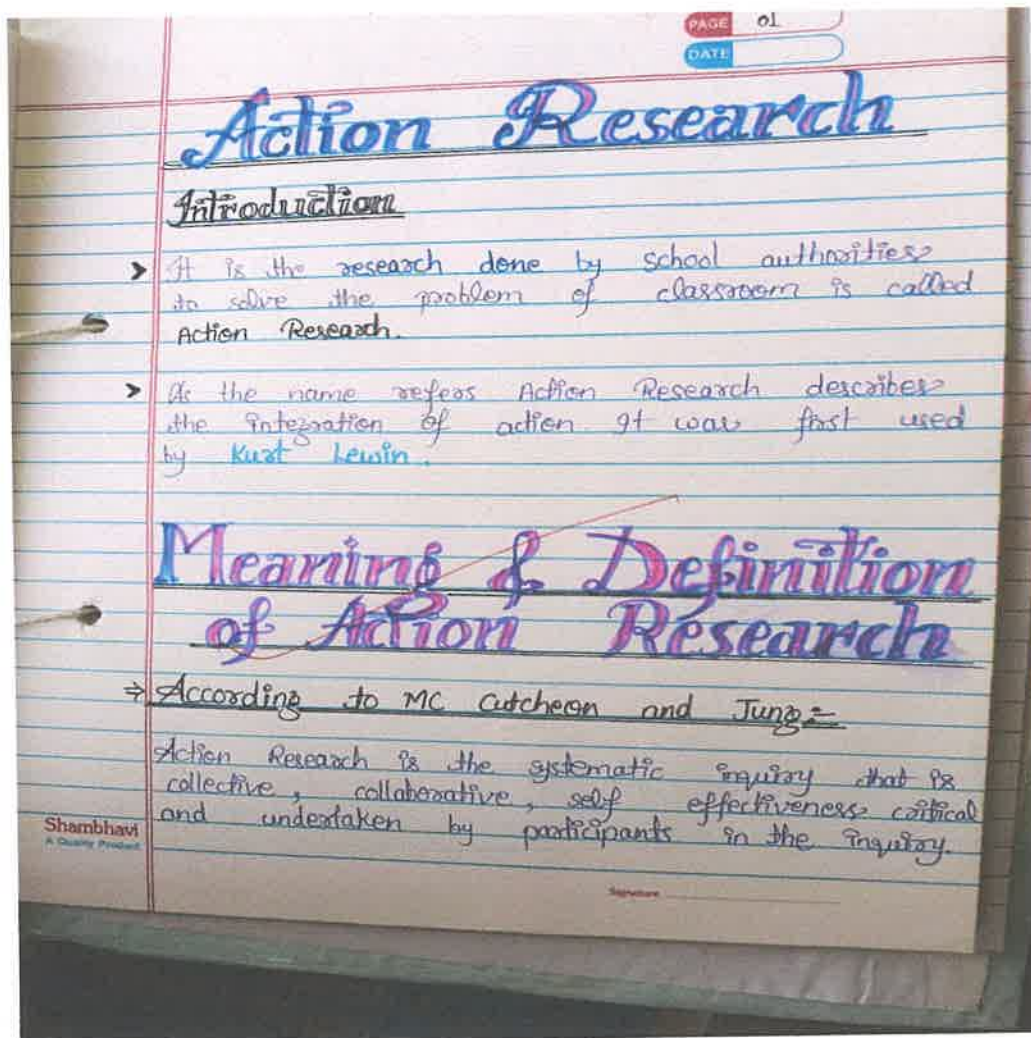 PAGE 01
DATE
Action Research
Introduction
➤ It is the research done by school authorities
to solve the problem of classroom is called
Action Research.
➤ As the name refers Action Research describes
the integration of action It was first used
by Kurt Lewin.
Meaning & Definition
of Action Research
⇒ According to MC Cutcheon and Jung:-
Action Research is the systematic inquiry that is
collective, collaborative, self effectiveness critical
and undertaken by participants in the inquiry.
Shambhavi
A Quality Product
Signature